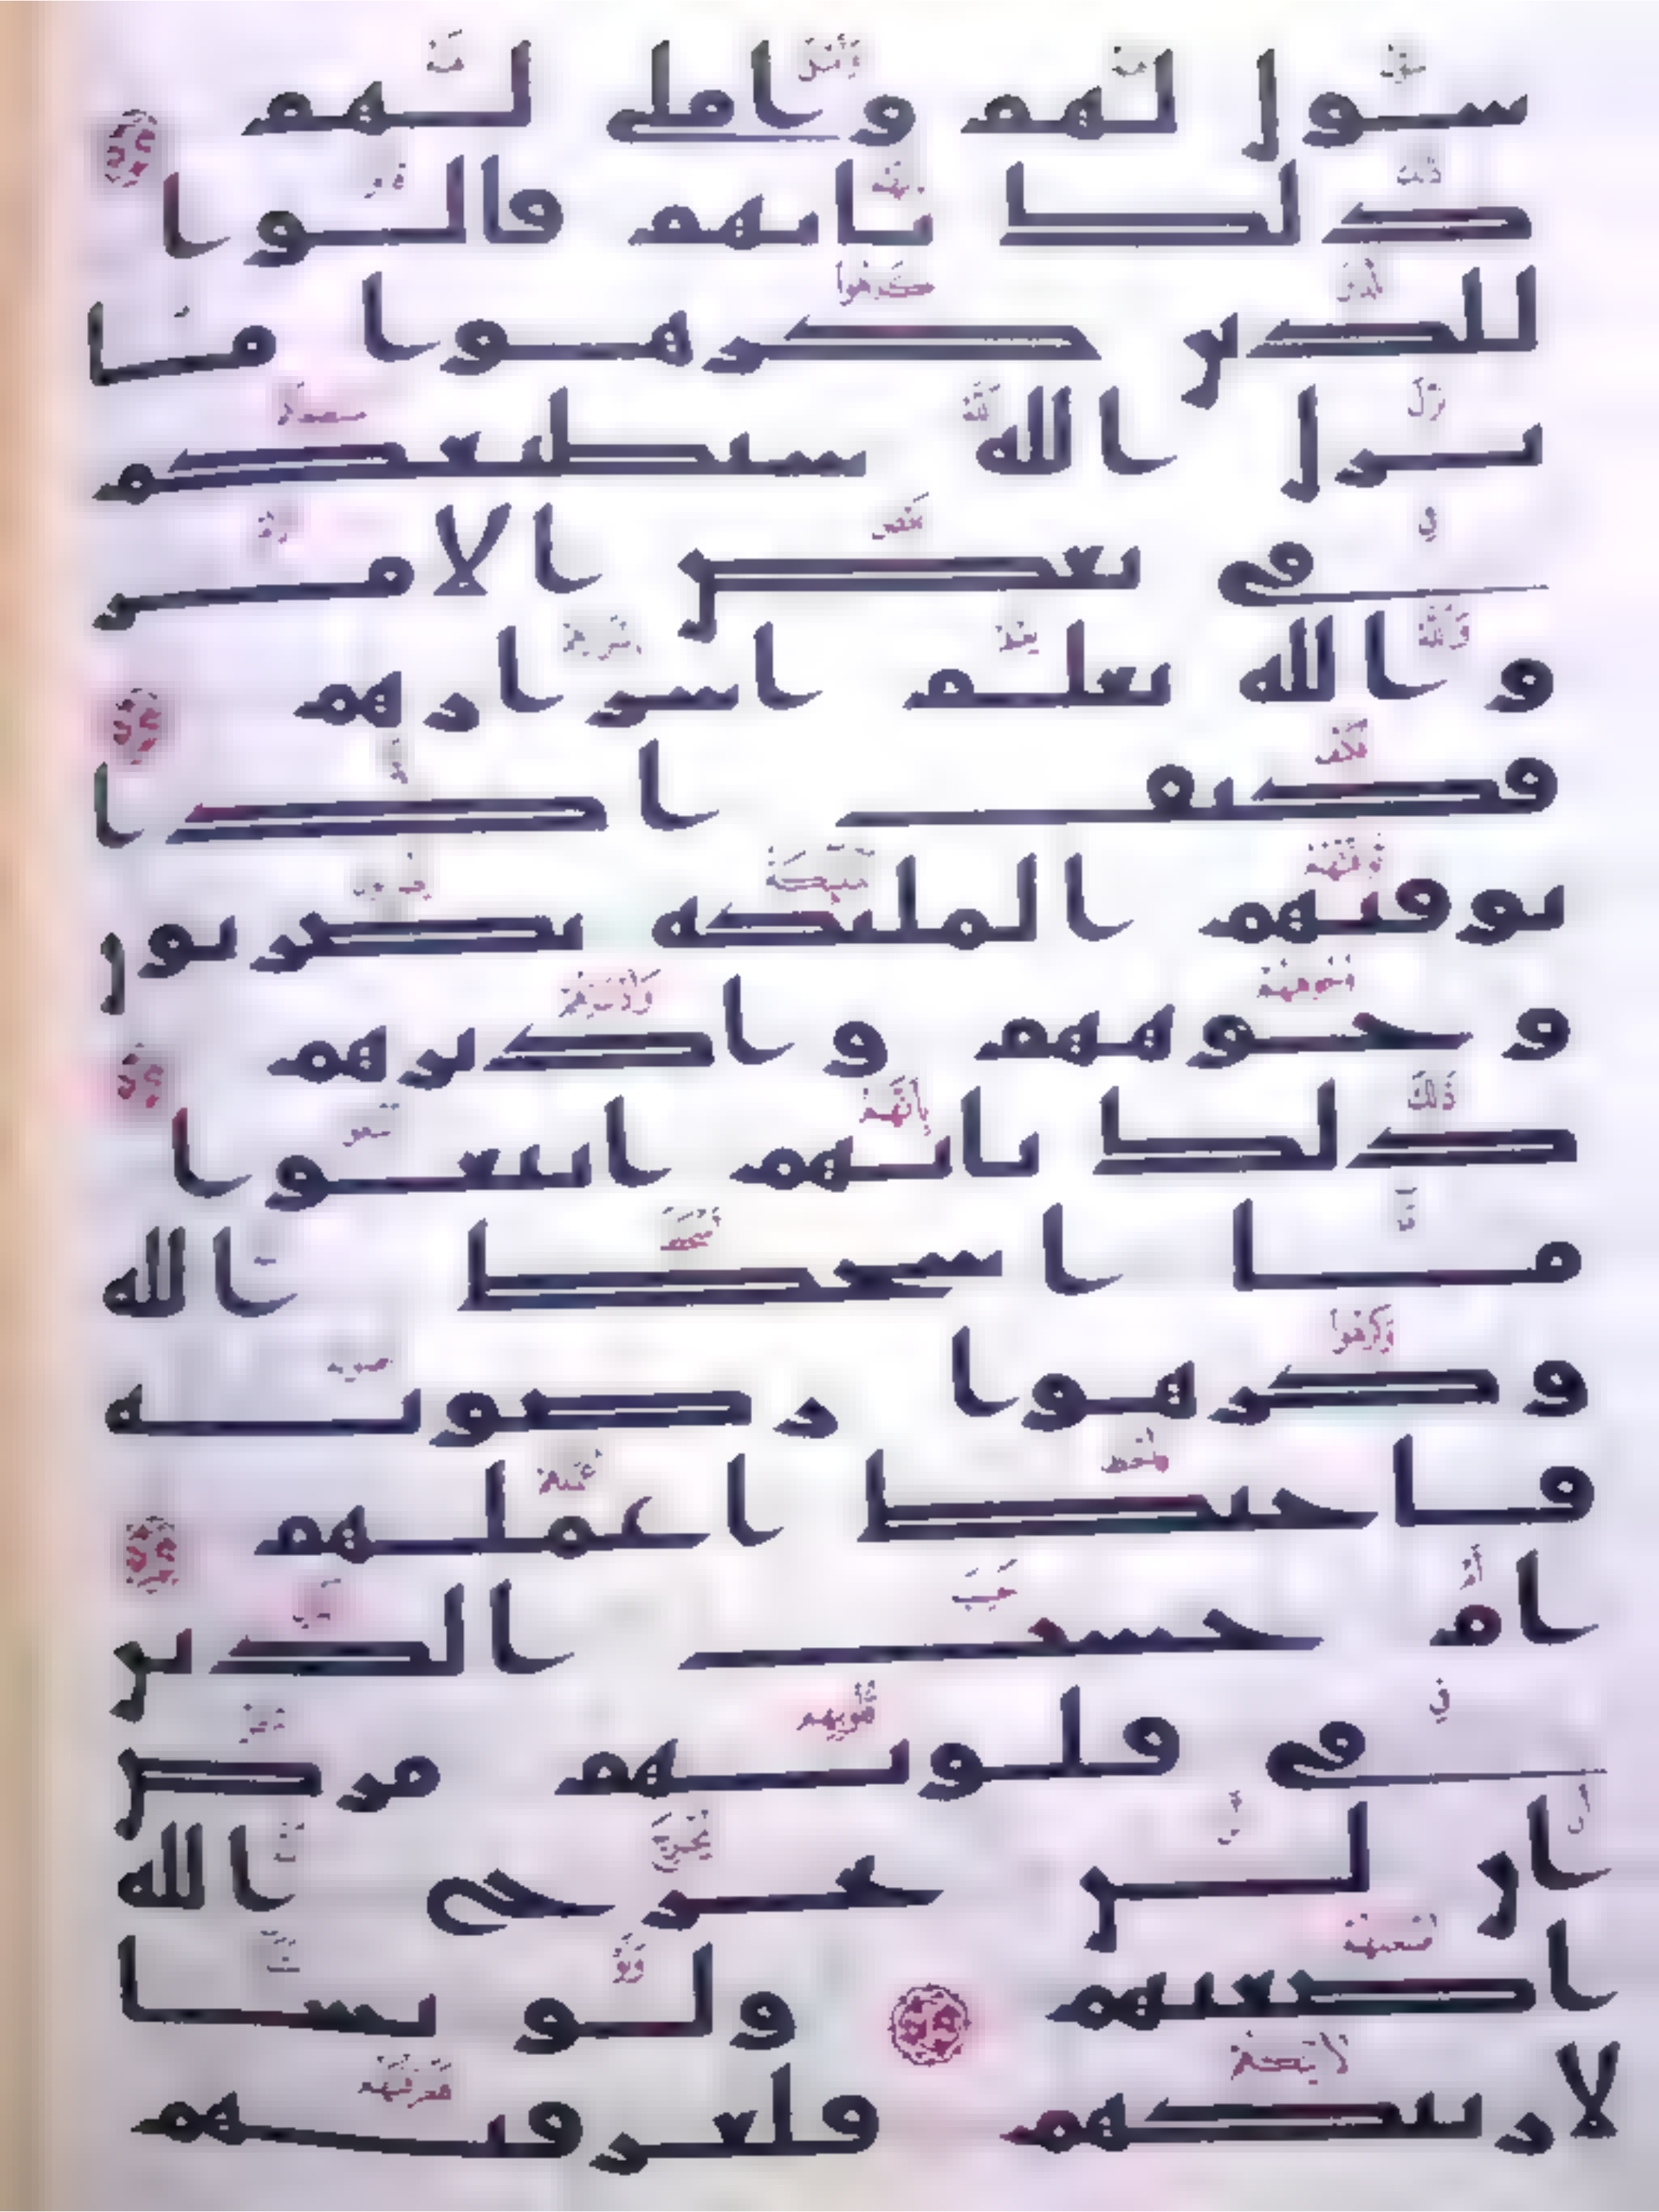 سول لهم واملى لهم
ذلك بانهم قالوا
للذين كرهوا ما
نزل الله سنطيعكم
في بعض الامر
والله يعلم اسرارهم
فكيف اذا
توفتهم الملئكه يضربون
وجوههم وادبرهم
ذلك بانهم اتبعوا
ما اسخط الله
وكرهوا رضونه
فاحبط اعملهم
ام حسب الذين
في قلوبهم مرض
ان لن يخرج الله
اضغنهم ولو نشا
لارينكهم فلعرفتهم